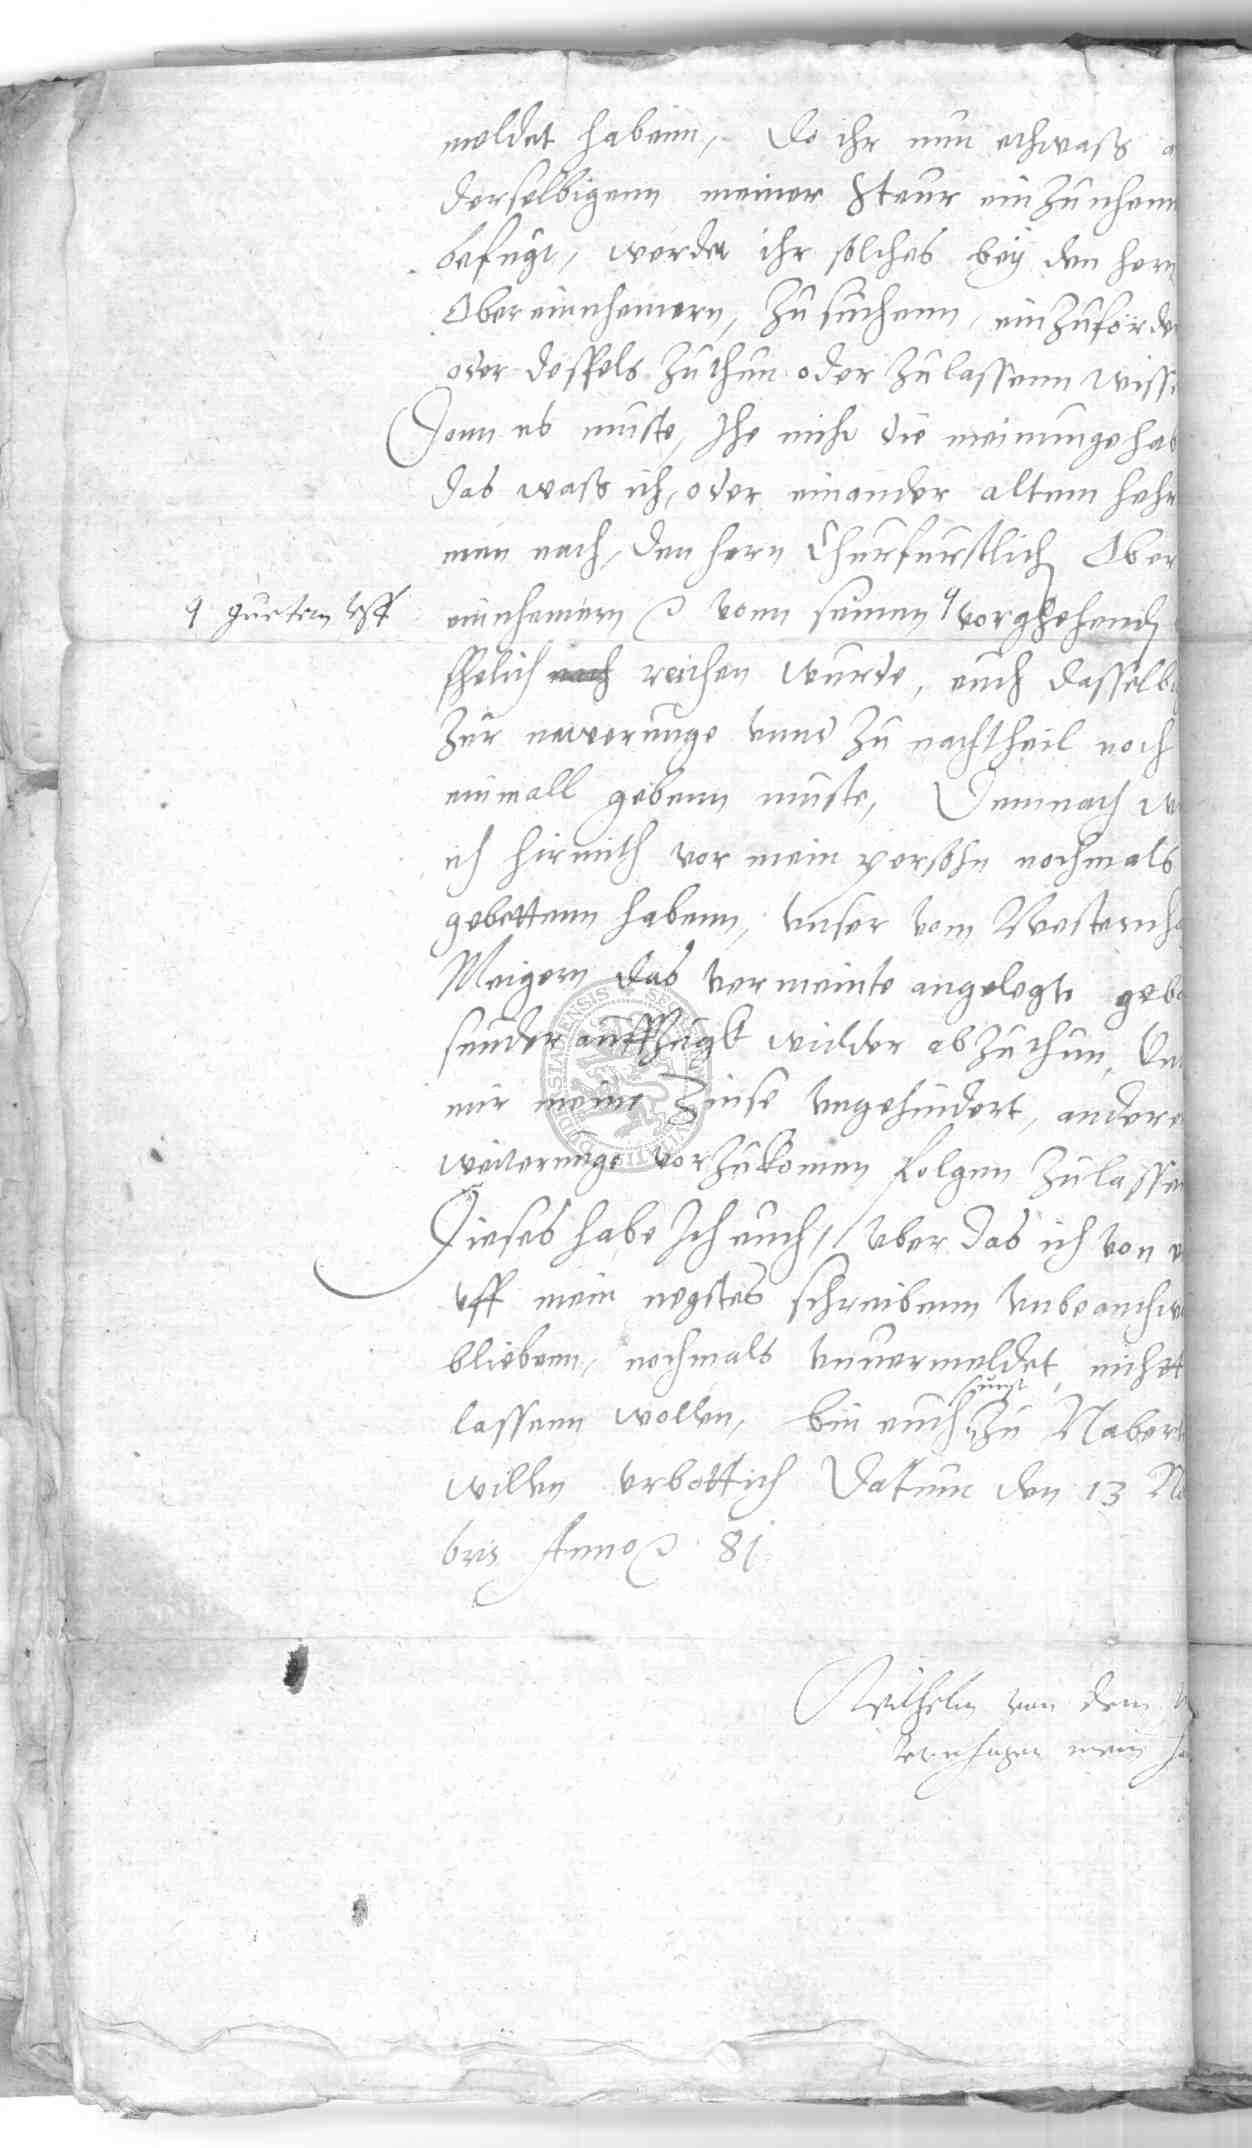 meldet habenn, Do ihr nun ethwaß a
derselbigenn meiner Steur einzunhem
befugt, werdet ihr solches beÿ den hern
Obereinnhemern, zu suchenn, einzuforder
oder desfels zuthun oder zulassenn wisse
Denn es muste, Ihe nicht die meinunge hab
das waß ich, oder ein ander altem hehr
men nach, den hern Churfurstlich Ober
q guetern vff
einnhemern vonn seinen q vorgehend
schlich nach reichen wurde, auch dasselb
zur newerunge vnnd zu nachtheil noch
einmall gebenn muste, Demnach w
ich hirmith vor mein persohn nochmals
gebettenn habenn, vnser vom Westernha
Meigern das vermeinte angelegte gebo
sunder auffzugk widder abzuthun, Vn
mir meine Zinse vngehindert, andere
weiterunge vorzukomen folgen zulassen
Dieses habe Ich auch, vber das ich von
vff mein negstes schreibenn vnbeanthw
bliebenn, nochmals vnuermeldet, nicht
lassenn wollen, bin euch sunst zu Naber
willen erbottich Datum den 13 No
bris Anno 81
Wilhelm von dem W
ternhagen mein ha
SIGILLUM CIVITATIS DUDERSTADENSIS